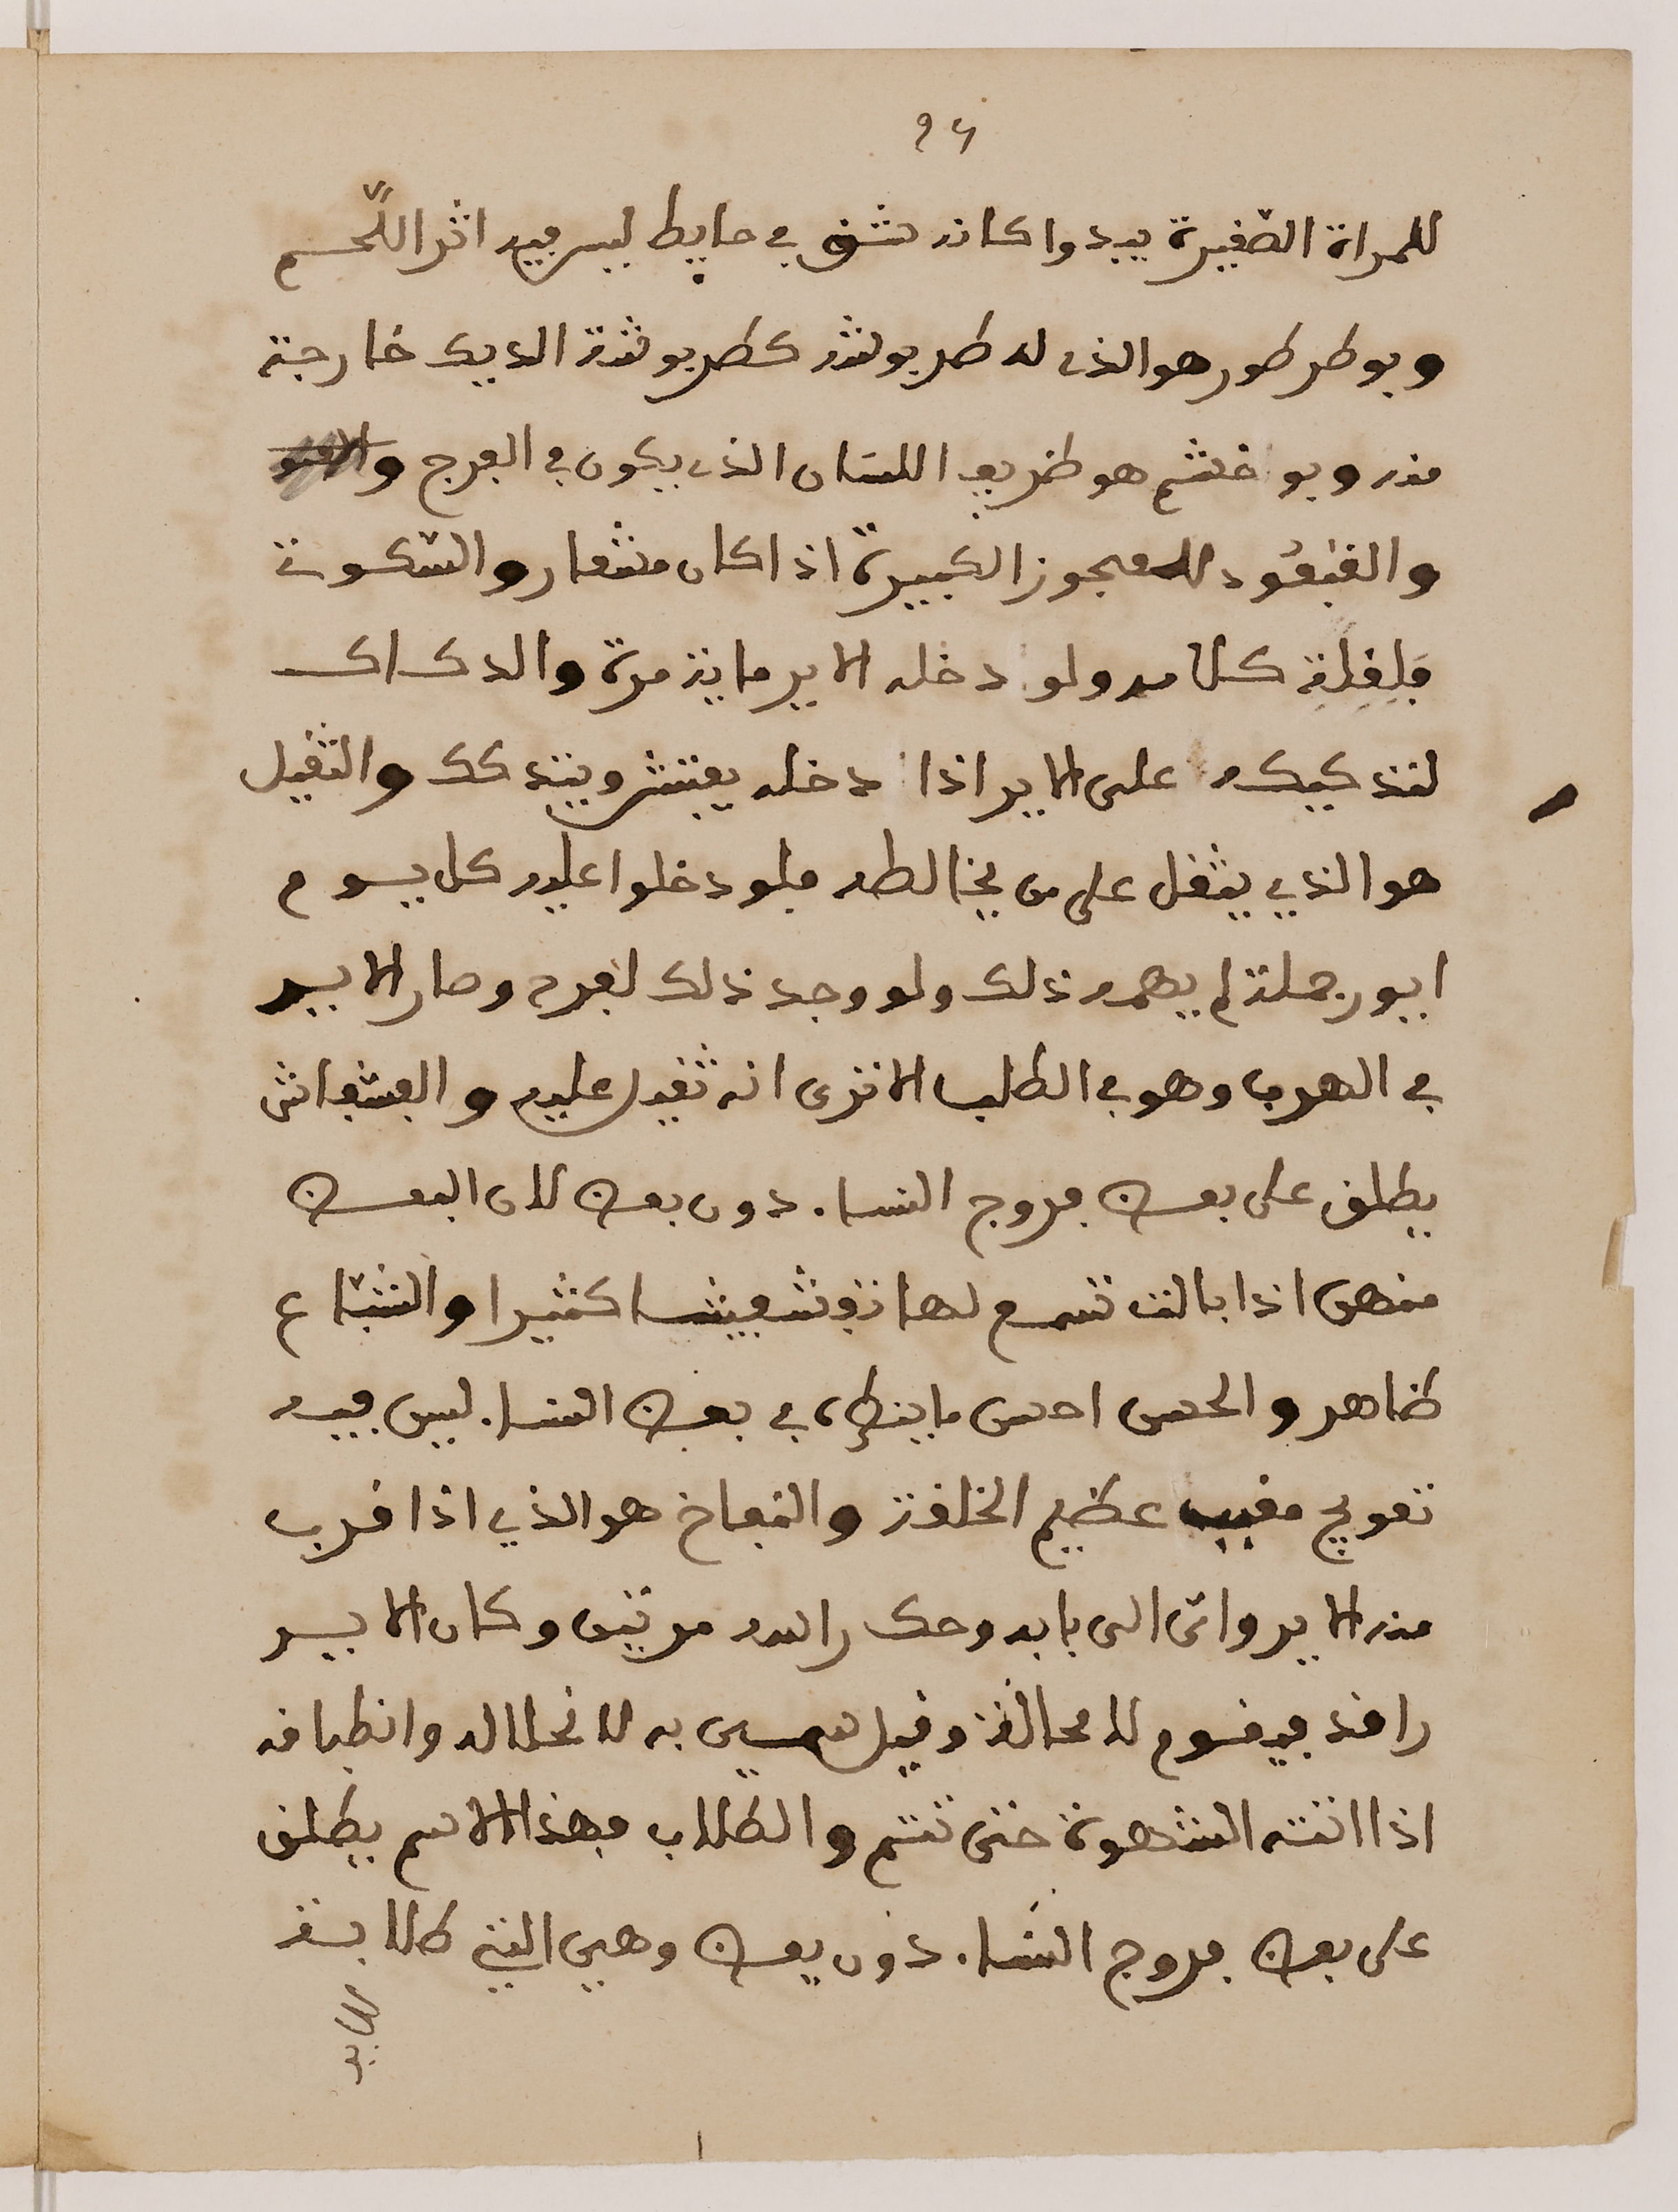 ٩٤
للمراة الصغيرة يبدوا كانه شق في حايط ليس فيه اثر اللحم
وبوطرطور هو الذي له طربوشة كطربوشة الديك خارجة
منه وبوخشم هو ظريف اللسان الذي يكون في الفرج
والقنفود للعجوز الكبيرة اذا كان مشعار والسكوتي
قليل كلامه ولو دخله الاير ماية مرة والدكاك
لتدكيكه على الاير اذا دخله يفتش ويتدكك والثقيل
هو الذي يثقل على من يخالطه فلو دخلوا عليه كل يوم
ايور جملة لم يهمه ذلك ولو وجد ذلك لفرح وصار الاير
في الهرب وهو في الطلب الا ترى انه ثقيل عليه والفشفاش
يطلق على بعض فروج النسا. دون بعض لان البعض
منهن اذا بالت تسمع لها تفشفيشا كثيرا والبشاع
ظاهر والحسن احسن ما ينظر في بعض النسا. ليس فيه
تعويج مقبب عظيم الخلقة والنفاخ هو الذي اذا قرب
منه الاير واتى الى بابه وحك راسه مرتين وكان الاير
راقد فيقوم لا محالة وقيل سمي به لانحلاله وانطباقه
اذا اتته الشهوة حتى تتم والطلاب فهذا الاسم يطلق
على بعض فروج النسا. دون بعض وهي التي طالبة
للاير